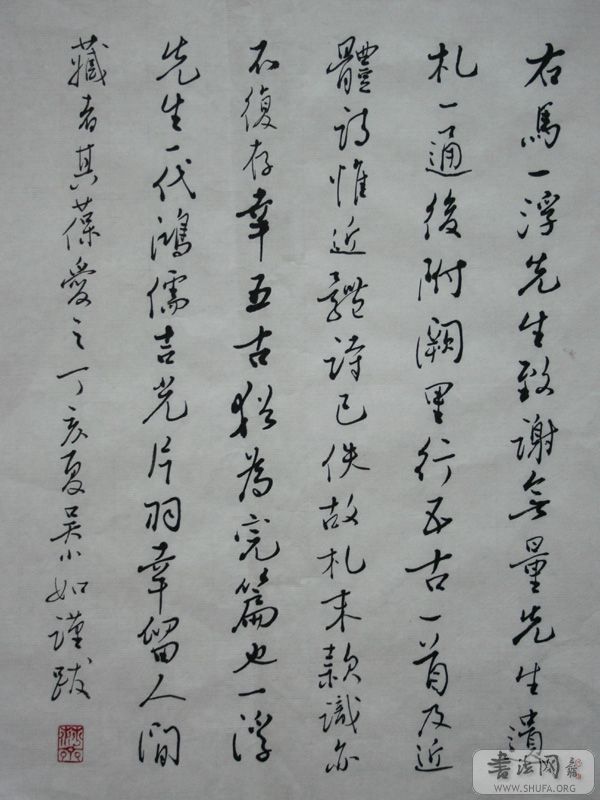 右馬一浮先生致謝無量先生遺
札一通後附闕里行五古一首及近
體詩惟近體詩已佚故札末款識亦
不復存幸五古猶為完篇也一浮
先生一代鴻儒吉光片羽幸留人間
藏者其葆愛之丁亥夏吳小如謹跋
書法网
WWW.SHUFA.ORG